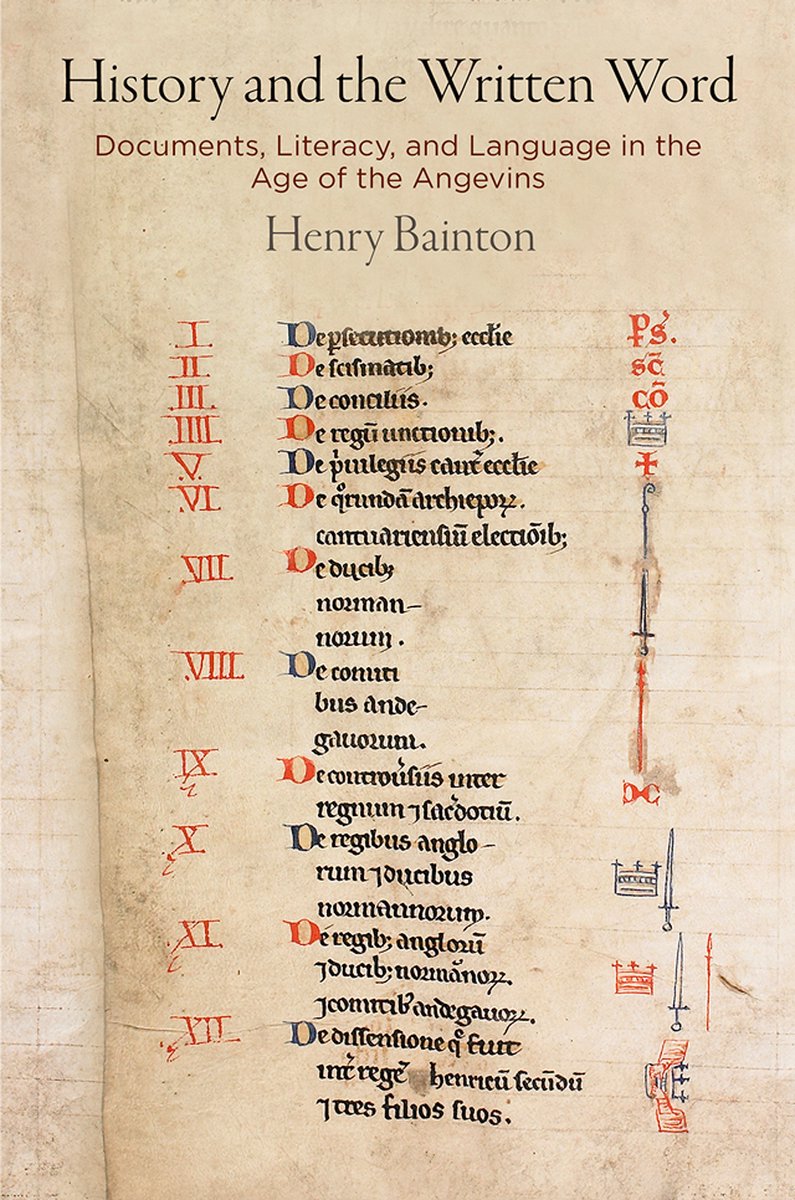 History and the Written Word
Documents, Literacy, and Language in the
Age of the Angevins
Henry Bainton
I. De ꝑsecutionib; ecct̄ie ꝑs᷒.
II. De scismatib; sc̄
III. De conciliis. cō
IIII. De regū unctionib;.
V. De p̓uilegiis cant᷒ ecct̄ie
VI De qͦrundā archiepoꝝ.
cantuariensiū electiōib;
VII De ducib;
norman-
norum.
VIII. De comiti
bus ande-
gauorum.
IX De controu᷒siis inter
regnum ⁊ sac᷒dotiū.
X De regibus anglo-
rum ⁊ ducibus
normannorum.
XI De regib; anglorū
⁊ ducib; normānoꝝ.
⁊ comitib᷒ andegauoꝝ.
XII De dissensione qͦ fuit
int᷒ regē henricū secūdū
⁊ tres filios suos.